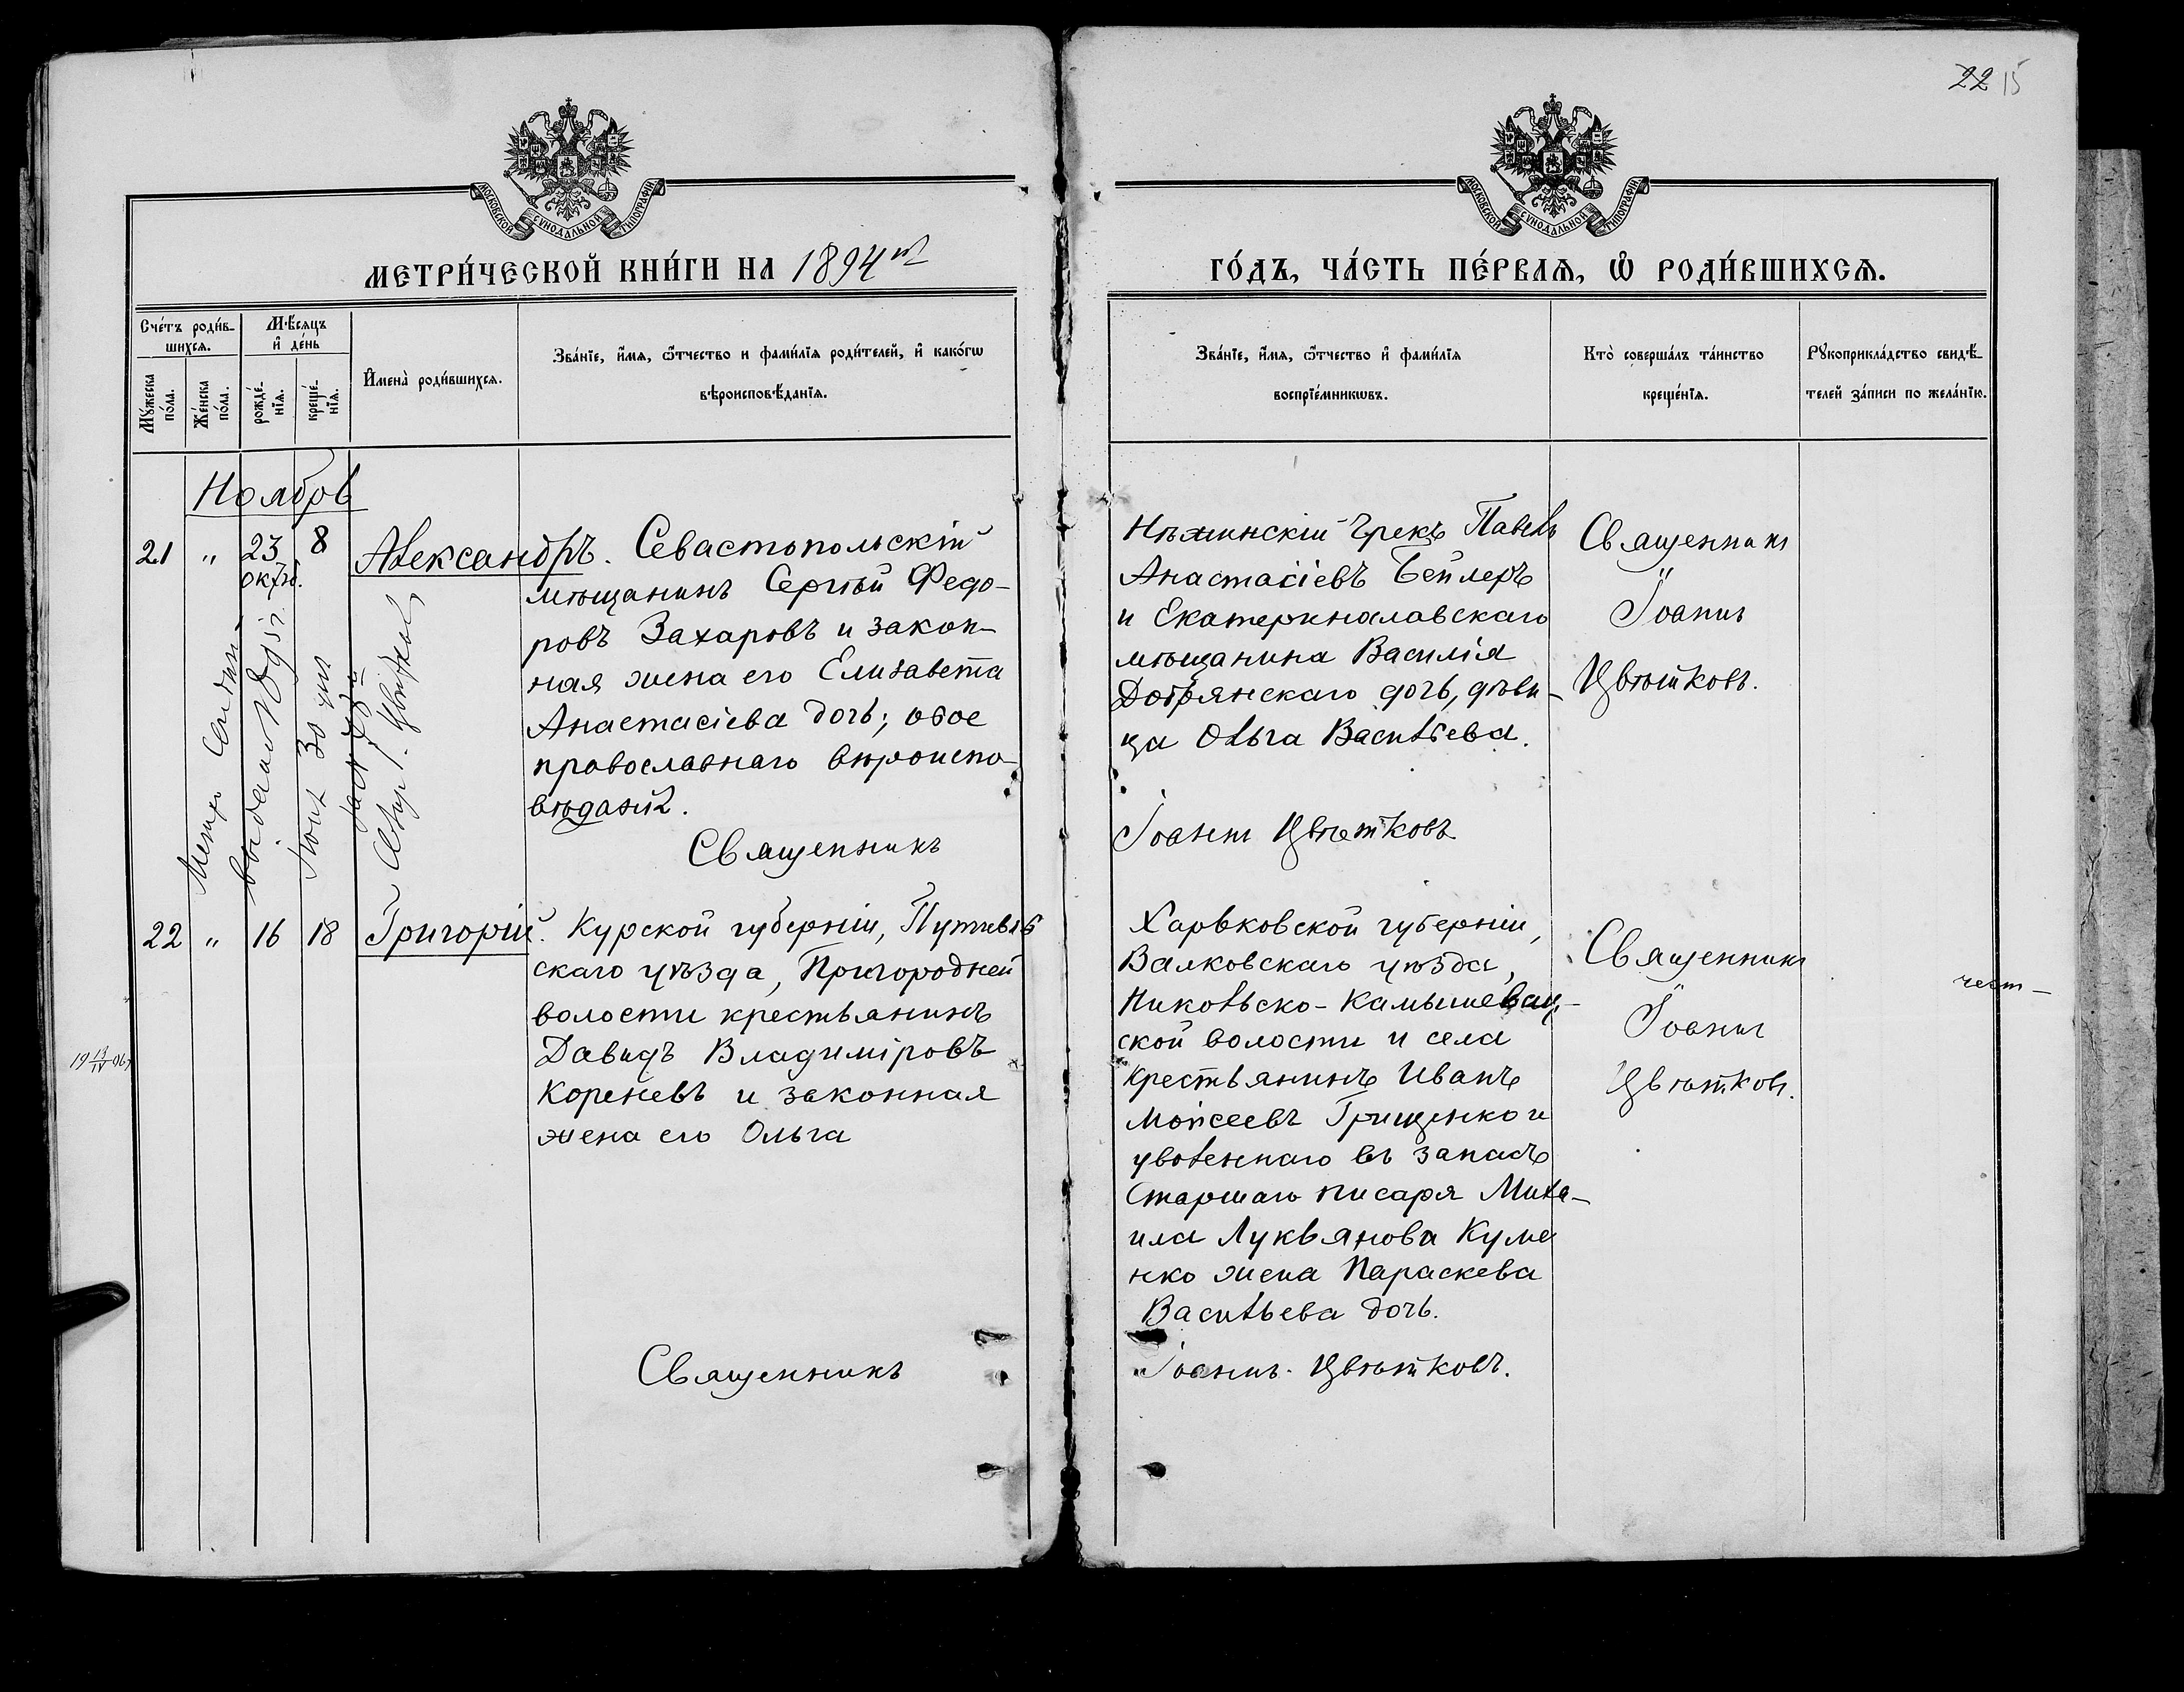 22 15
МОСКОВСКОЙ СУНОДАЛЬНОЙ ТИПОГРАФІИ
МОСКОВСКОЙ СУНОДАЛЬНОЙ ТИПОГРАФІИ
МЕТРИ́ЧЕСКОЙ КНИ́ГИ НА 1894й
ГО́ДЪ, ЧА́СТЬ ПЕ́РВАѦ, Ѡ҆ РОДИ́ВШИХСѦ.
Сче́тъ роди́в-
шихсѧ.
Мꙋ́жеска
по́ла.
Же́нска
по́ла.
Мѣ́сѧцъ
и҆ де́нь
рожде́-
нїѧ.
креще́-
нїѧ.
И҆мена̀ роди́вшихсѧ.
Зва́нїе, и҆́мѧ, ѻ҆́тчество и фами́лїѧ роди́телей, и҆ како́гѡ
вѣроисповѣ́данїѧ.
Зва́нїе, и҆́мѧ, ѻ҆́тчество и҆ фами́лїѧ
воспрїе́мникѡвъ.
Кто̀ соверша́лъ та́инство
креще́нїѧ.
Рꙋкоприкла́дство свидѣ́-
телей за́писи по жела́нїю.
Ноябрь
21 " 23 октяб. 8 Александръ.
Севастопольскій
мѣщанинъ Сергѣй Федо-
ровъ Захаровъ и закон-
ная жена его Елизавета
Анастасіева дочь; обое
православнаго вѣроиспо-
вѣданія.
Священникъ
Нѣжинскій Грекъ Павелъ
Анастасіевъ Бейлеръ
и Екатеринославскаго
мѣщанина Василія
Добрянскаго дочь, дѣви-
ца Ольга Васильева.
Іоаннъ Цвѣтковъ
Священникъ
Іоаннъ
Цвѣтковъ.
выданъ
22 " 16 18 Григорій.
Курской губерніи, Путивль
скаго уѣзда, Пригородней
волости крестьянинъ
Давидъ Владиміровъ
Кореневъ и законная
жена его Ольга
Священникъ
Харьковской губерніи,
Валковскаго уѣзда,
Никольско-Камышевац-
ской волости и села
крестьянинъ Иванъ
Моисеевъ Грищенко и
уволеннаго въ запасъ
Старшаго писаря Миха-
ила Лукьянова Куме
нко жена Параскева
Васильева дочь.
Іоаннъ Цвѣтковъ.
Священникъ
Іоаннъ
Цвѣтковъ.